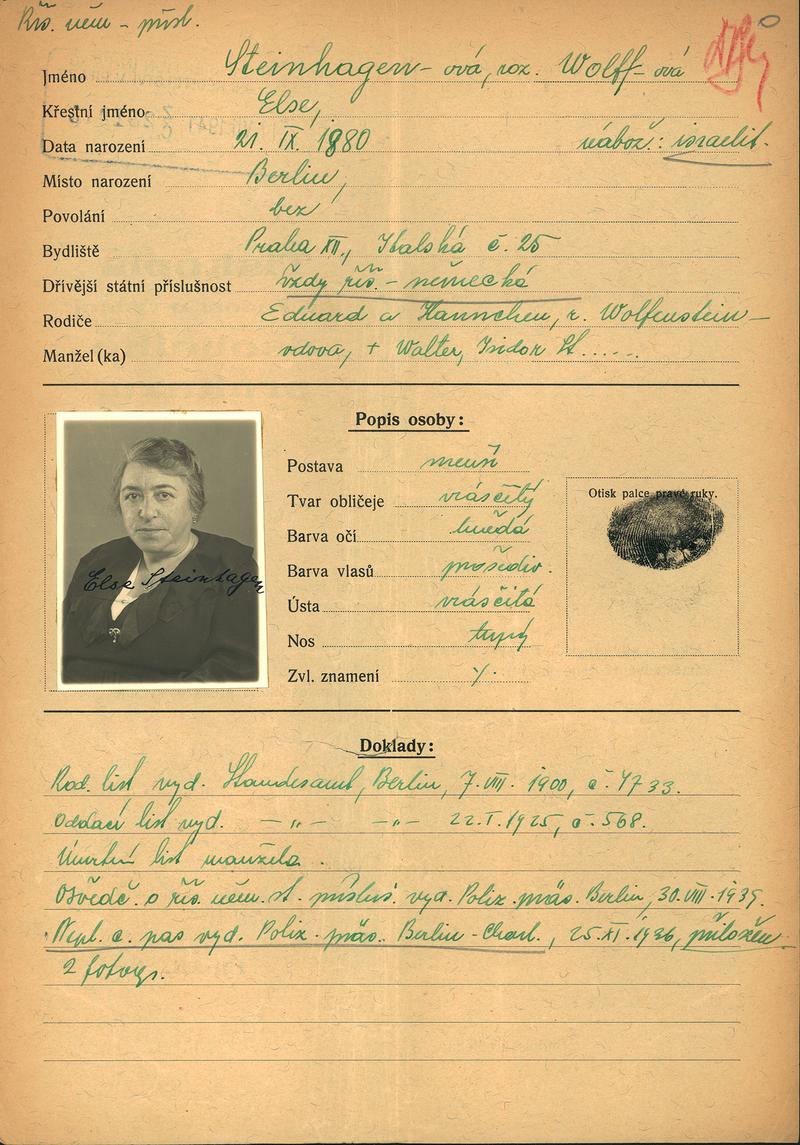 Říš. něm - přísl.
Jméno Steinhagen-ová, roz. Wolff-ová
Křestní jméno Else,
Data narození 21. IX. 1880 nábož: israelit.
Místo narození Berlin,
Povolání bez
Bydliště Praha XII., Italská č. 25
Dřívější státní příslušnost Vždy říš. - německá
Rodiče Eduard a Hannchen, r. Wolfenstein
Manžel (ka) vdova, + Walter, Isidor St.....
Popis osoby:
Postava menší
Tvar obličeje vrásčitý
Barva očí hnědá
Barva vlasů prošediv.
Ústa vrásčitá
Nos tupý
Zvl. znamení
Otisk palce pravé ruky.
Else Steinhagen
Doklady:
Rod. list vyd. Standesamt, Berlin, 7. VIII. 1900, č. 4733.
Oddací list vyd. — „ — — „ — 22. I. 1925, č. 568.
Úmrtní list manžela.
Osvědč. o říš. něm. st. přísluš. vyd. Poliz. präs. Berlin, 30. VIII. 1939.
Nepl. c. pas vyd. Poliz. präs. Berlin-Charl., 25. XI. 1936, přiložen
2 fotogr.